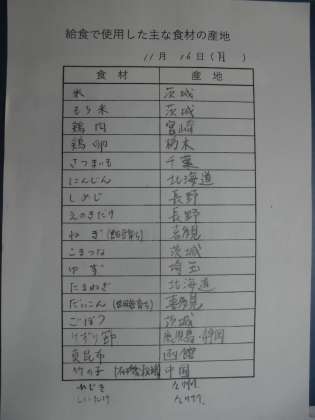 給食で使用した主な食材の産地
11月 16日(月 )
食材 産地
米 茨城
もち米 茨城
鶏肉 宮崎
鶏卵 栃木
さつまいも 千葉
にんじん 北海道
しめじ 長野
えのきたけ 長野
ねぎ
こまつな 茨城
ゆず 埼玉
たまねぎ 北海道
だいこん
ごぼう 茨城
けずり節 鹿児島・静岡
真昆布 函館
竹の子 中国